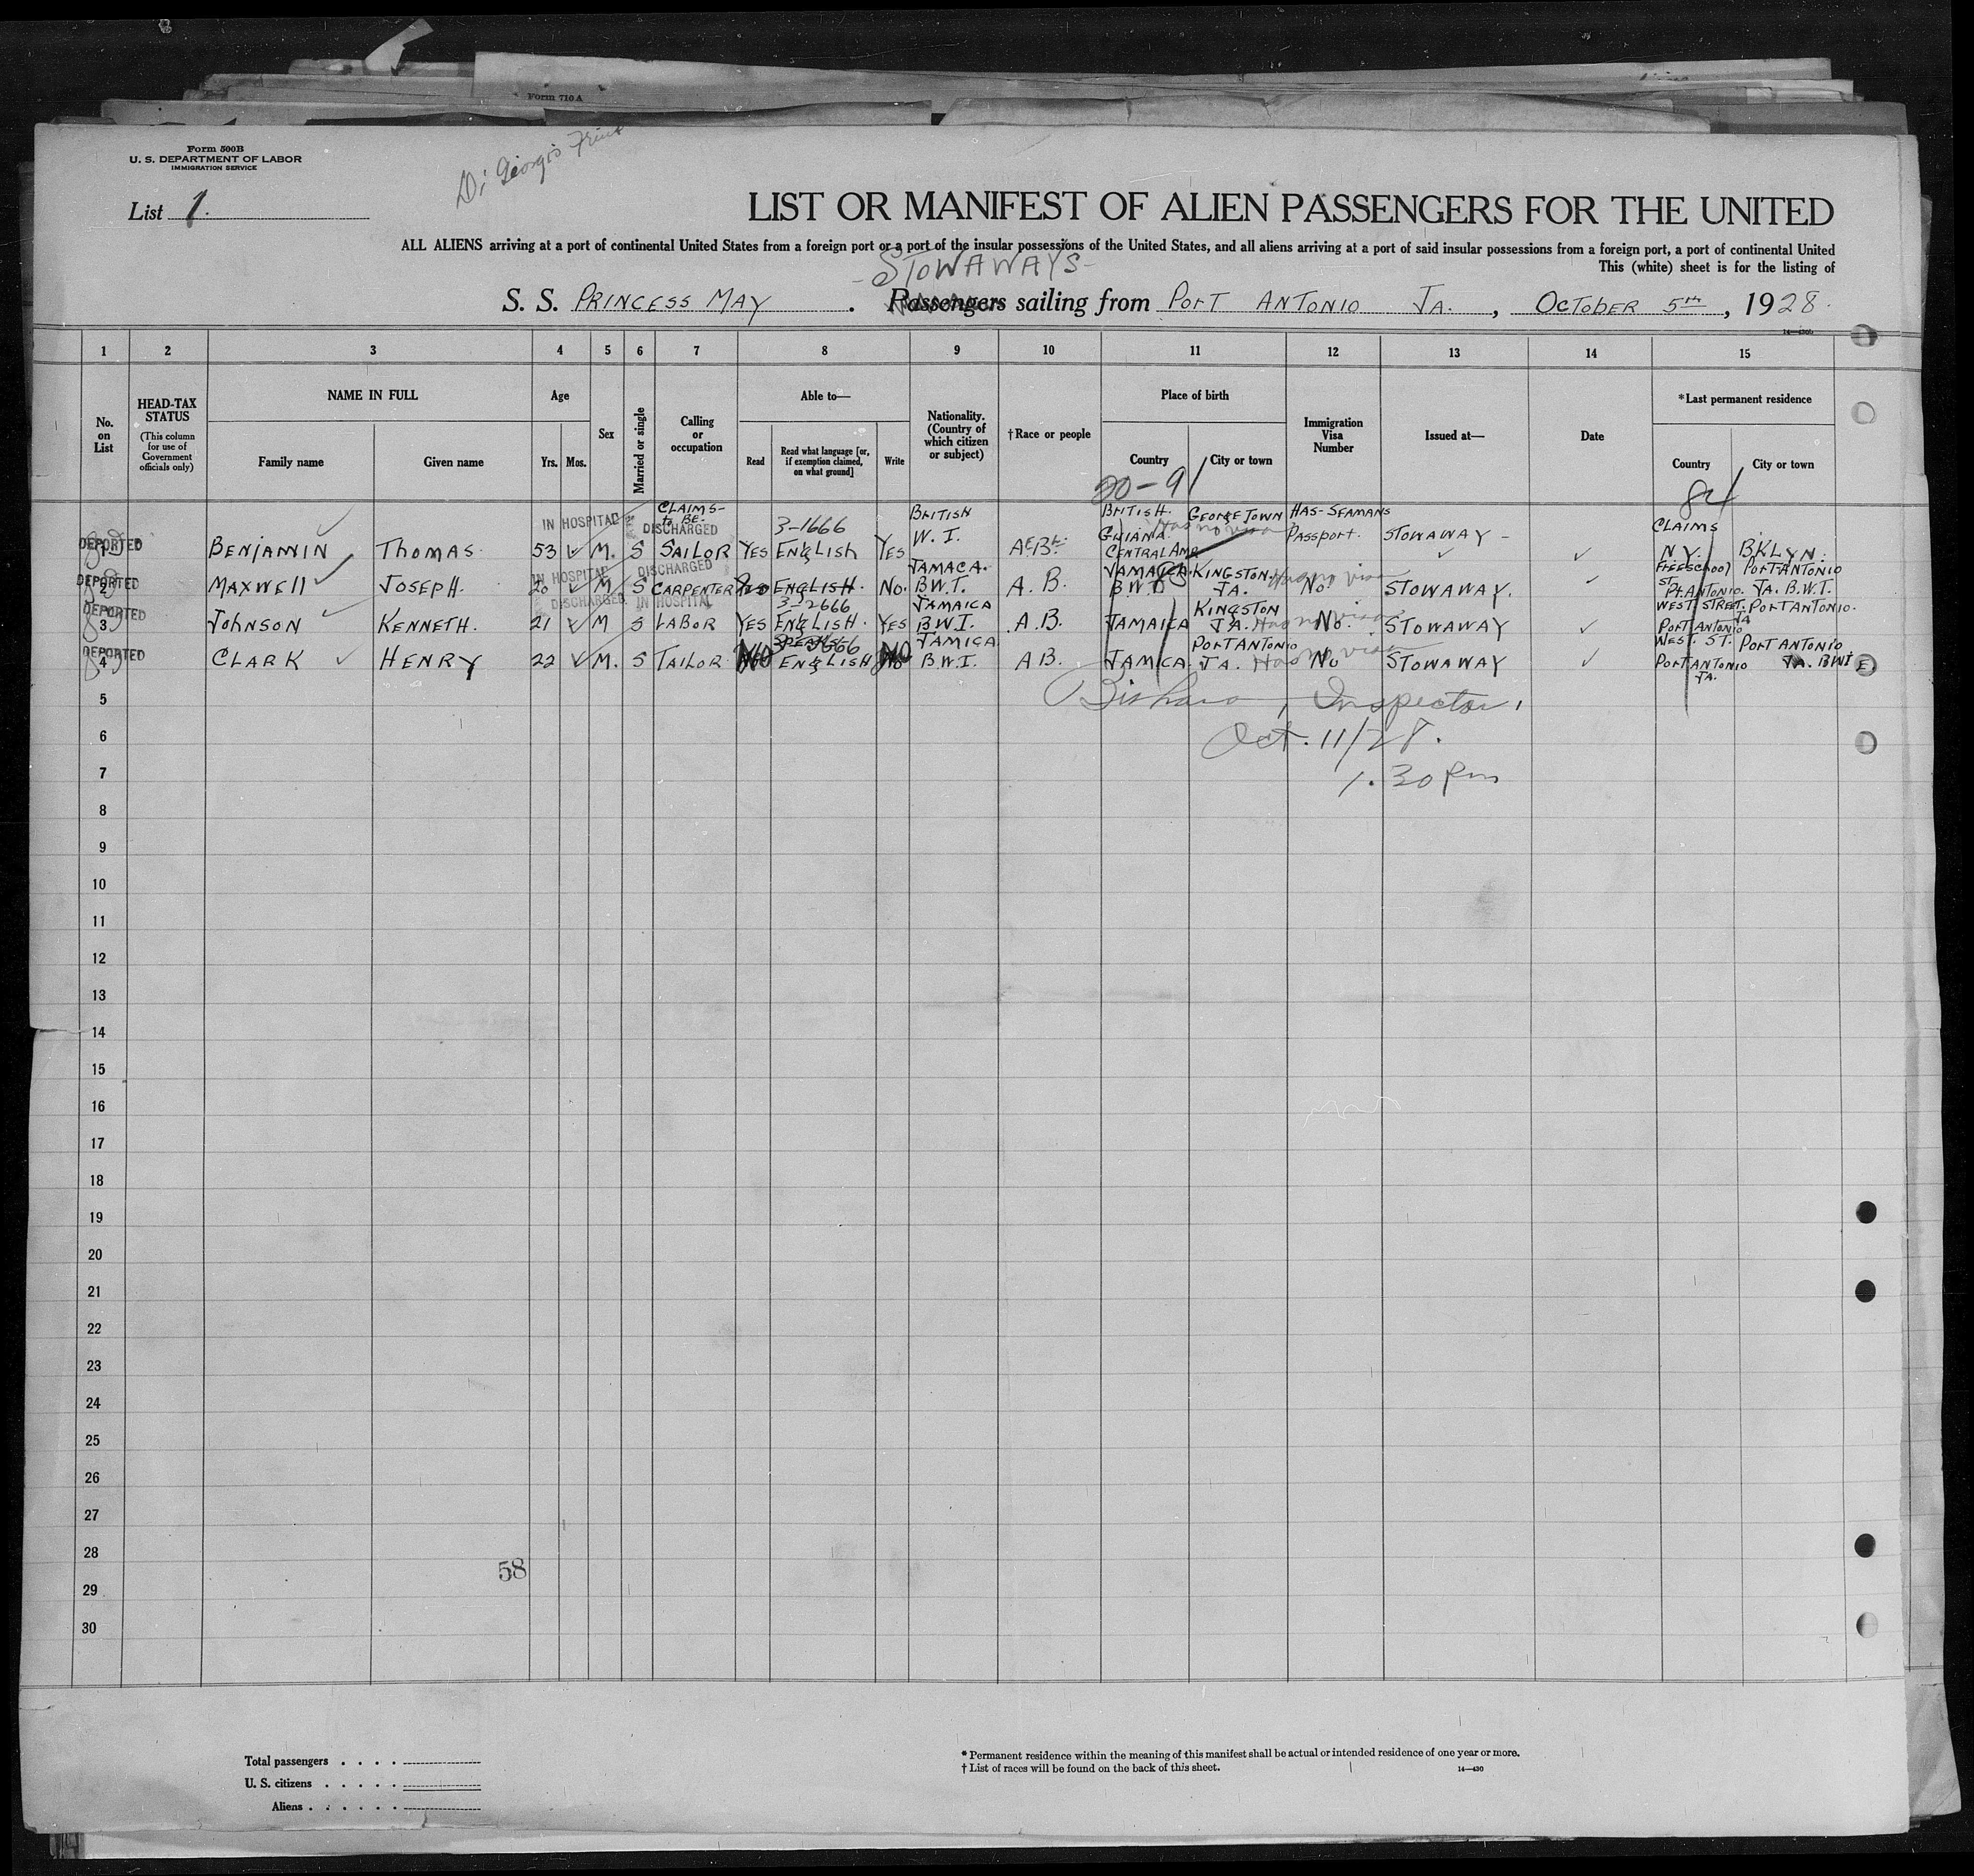 Form 710 A
Form 500B
U. S. DEPARTMENT OF LABOR
IMMIGRATION SERVICE
Di Giorgio Fruit
List 1.
LIST OR MANIFEST OF ALIEN PASSENGERS FOR THE UNITED
ALL ALIENS arriving at a port of continental United States from a foreign port or a port of the insular possessions of the United States, and all aliens arriving at a port of said insular possessions from a foreign port, a port of continental United
This (white) sheet is for the listing of
- STOWAWAYS -
S. S. PRINCESS MAY . Passengers sailing from PORT ANTONIO JA. , OCTOBER 5TH , 1928.
1 2 3 4 5 6 7 8 9 10 11 12 13 14 15
No. on List
HEAD-TAX STATUS
(This column for use of Government officials only)
NAME IN FULL
Family name Given name
Age
Yrs. Mos.
Sex
Married or single
Calling or occupation
Able to—
Read
Read what language [or, if exemption claimed, on what ground]
Write
Nationality. (Country of which citizen or subject)
† Race or people
Place of birth
Country City or town
Immigration Visa Number
Issued at—
Date
*Last permanent residence
Country City or town
20-91
84
DEPORTED 1 BENJAMIN THOMAS. 53 IN HOSPITAL M. S DISCHARGED CLAIMS- to BE- SAILOR YES 3-1666 ENGLISH YES BRITISH W. I. BRITISH. GUIANA. CENTRAL AMR GEORGETOWN Has no visa HAS-SEAMANS PASSPORT. STOWAWAY - CLAIMS N.Y. BKLYN.
DEPORTED 2 MAXWELL JOSEPH. 20 IN HOSPITAL M S DISCHARGED CARPENTER ENGLISH. NO. JAMACA. B.W.I. A. B. JAMAICA. KINGSTON. JA. Has no visa No. STOWAWAY. FREESCHOOL ST. Pt. ANTONIO. PORT ANTONIO JA. B.W.I.
DEPORTED 3 JOHNSON KENNETH. 21 DISCHARGED M S IN HOSPITAL LABOR YES 3-2666 ENGLISH. YES JAMAICA BWI. A.B. JAMAICA KINGSTON JA. Has no visa No. STOWAWAY WEST STREET. PORT ANTONIO PORT ANTONIO. JA
DEPORTED 4 CLARK HENRY 22 M. S TAILOR NO ENGLISH NO JAMICA B.W.I. A B. JAMICA. PORT ANTONIO JA. Has no visa No STOWAWAY WEST. ST. PORT ANTONIO JA. PORT ANTONIO JA. BWI
5
Inspector,
6
Oct. 11/28.
7
1.30 pm
8
9
10
11
12
13
14
15
16
17
18
19
20
21
22
23
24
25
26
27
28
58
29
30
Total passengers . . . .
U. S. citizens . . . . .
Aliens . . . . . .
* Permanent residence within the meaning of this manifest shall be actual or intended residence of one year or more.
† List of races will be found on the back of this sheet.
14—430